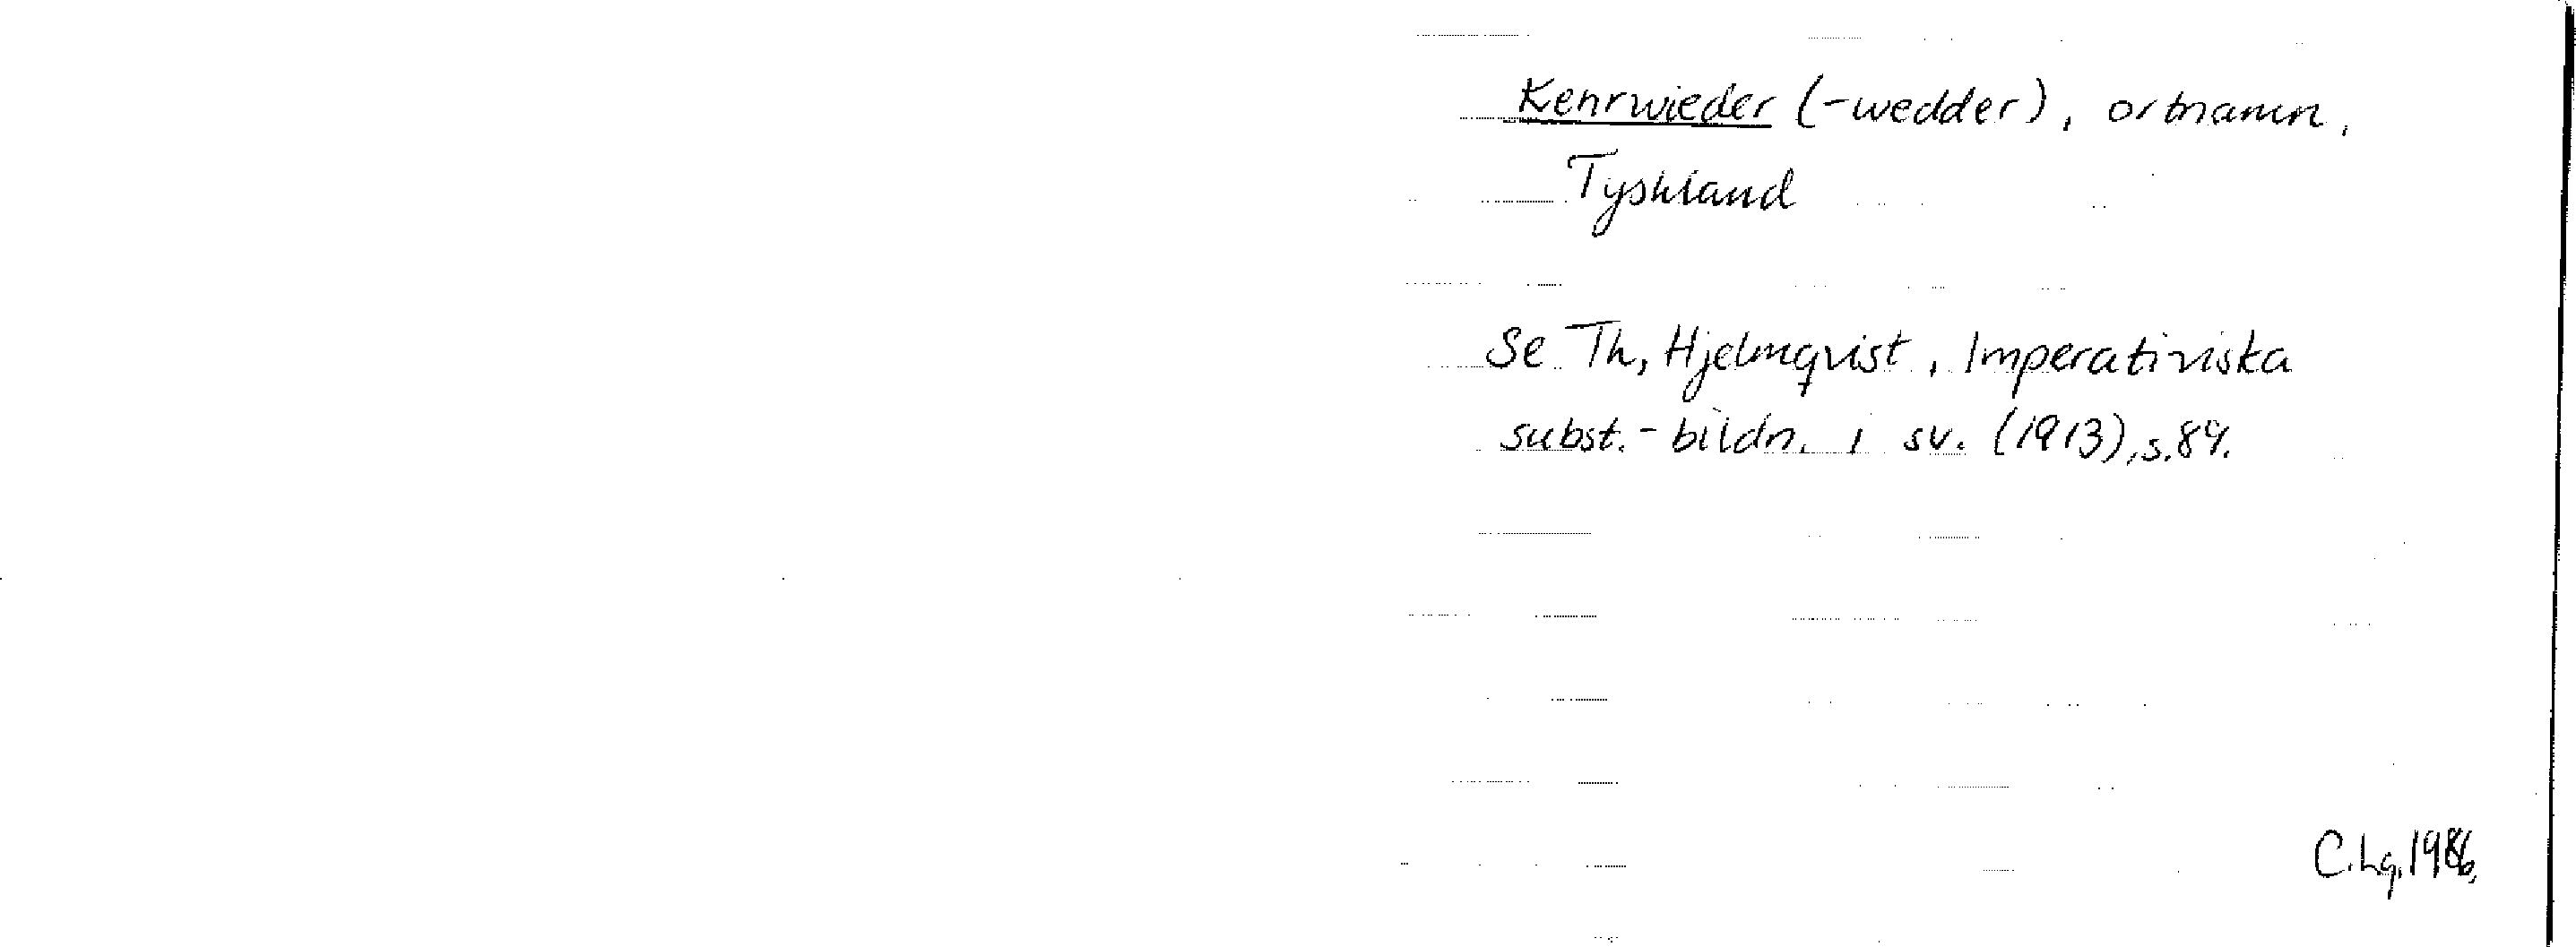 Kehrwieder (-wedder), ortnamn,
Tyskland
Se Th, Hjelmqvist, Imperativiska
subst.-bildn. i sv. (1913), s. 89.
C. Lg, 1986,